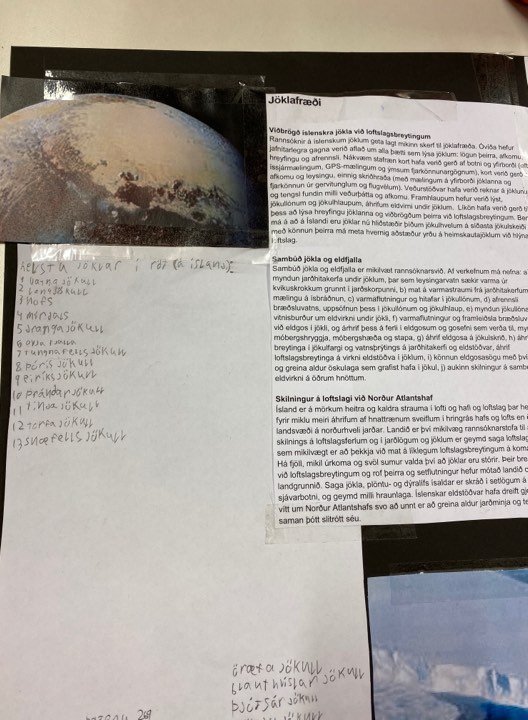 helstu jöklar í röð (á íslandi)
1 vatna jökull
2 langjökull
3 hofs
4 mírdals
5 drangajökull
7 tungnafellsjökull
8 þóris jökull
9 eiríksjökull
10 þrándarjökull
11 tindajökull
12 torfajökull
13 snæfellsjökull
öræfajökull
blautkvíslarjökull
þjótsárjökull
Jöklafræði
Viðbrögð íslenskra jökla við loftslagsbreytingum
Rannsóknir á íslenskum jöklum geta lagt mikinn skerf til jöklafræða. Óvíða hefur
jafnítarlegra gagna verið aflað um alla þætti sem lýsa jöklum: lögun þeirra, afkomu,
hreyfingu og afrennsli. Nákvæm stafræn kort hafa verið gerð af botni og yfirborði
íssjármælingum, GPS-mælingum og ýmsum fjarkönnunargögnum), kort verið
afkomu og leysingu, einnig skriðhraða (með mælingum á yfirborði jöklanna og
fjarkönnun úr gervitunglum og flugvélum). Veðurstöðvar hafa verið reknar á jöklunum
og tengsl fundin milli veðurþátta og afkomu. Framhlaupum hefur verið lýst,
jökullónum og jökulhlaupum, áhrifum eldvirkni undir jöklum. Líkön hafa verið gerð til
þess að lýsa hreyfingu jöklanna og viðbrögðum þeirra við loftslagsbreytingum.
má á að á Íslandi eru jöklar nú hliðstæðir þíðum jökulhvelum á síðasta jökulskeiði
með könnun þeirra má meta hvernig aðstæður yrðu á heimskautajöklum við
loftslag.
Sambúð jökla og eldfjalla
Sambúð jökla og eldfjalla er mikilvæt rannsóknarsvið. Af verkefnum má nefna: a)
myndun jarðhitakerfa undir jöklum, þar sem leysingarvatn sækir varma úr
kvikuskrokkum grunnt í jarðskorpunni, b) mat á varmastraumi frá jarðhitakerfum
mælingu á ísbráðnun, c) varmaflutningur og hitafar í jökullónum, d) afrennsli
bræðsluvatns, uppsöfnun þess í jökullónum og jökulhlaup, e) myndun jökullóna
vitnisburður um eldvirkni undir jökli, f) varmaflutningur og framleiðsla bræðsluvatns
við eldgos í jökli, og áhrif þess á ferli í eldgosum og gosefni sem verða til,
móbergshryggja, móbergshæða og stapa, g) áhrif eldgosa á jökulskrið, h) áhrif
breytinga í jökulfargi og vatnsþrýstings á jarðhitakerfi og eldstöðvar, áhrif
loftslagsbreytinga á virkni eldstöðva í jöklum, i) könnun eldgosasögu með því
og greina aldur öskulaga sem grafist hafa í jökul, j) aukinn skilningur á
eldvirkni á öðrum hnöttum.
Skilningur á loftslagi við Norður Atlantshaf
Ísland er á mörkum heitra og kaldra strauma í lofti og hafi og loftslag þar
fyrir miklu meiri áhrifum af hnattrænum sveiflum í hringrás hafs og lofts en
landsvæði á norðurhveli jarðar. Landið er því mikilvæg rannsóknarstofa til
skilnings á loftslagsferlum og í jarðlögum og jöklum er geymd saga loftslags
sem mikilvægt er að þekkja við mat á líklegum loftslagsbreytingum á
Há fjöll, mikil úrkoma og svöl sumur valda því að jöklar eru stórir. Þeir
við loftslagsbreytingum og rof þeirra og setflutningur hefur mótað landið
landgrunnið. Saga jökla, plöntu- og dýralífs ísaldar er skráð í setlögum á
sjávarbotni, og geymd milli hraunlaga. Íslenskar eldstöðvar hafa dreift
vítt um Norður Atlantshafs svo að unnt er að greina aldur jarðminja og
saman þótt slitrótt séu.